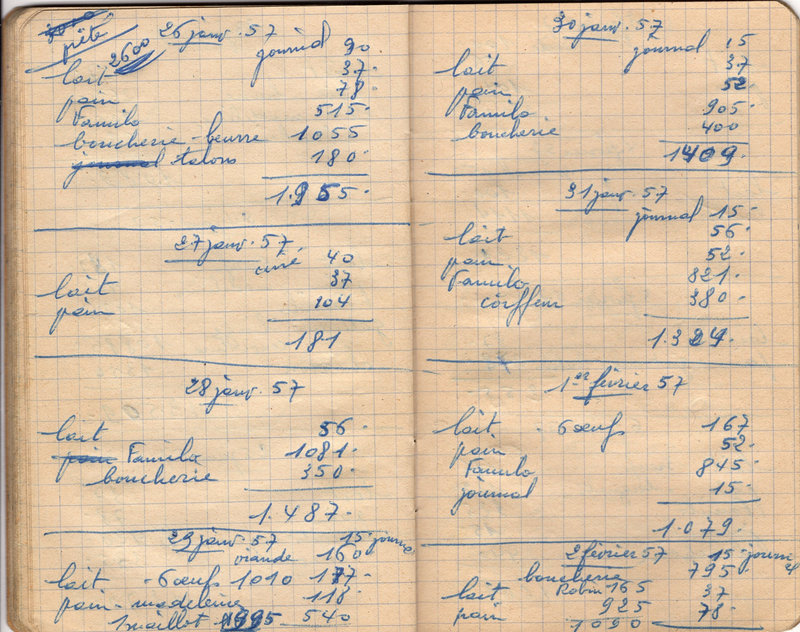 prêté
2600
26 janv. 57
journal 90.
lait 37.
pain 78.
Familo 515.
boucherie - beurre 1055
talons 180.
1.955.
27 janv. 57.
curé 40
lait 37
pain 104
181
28 janv. 57
lait 56.
pain Familo 1081.
boucherie 350.
1.487.
29 janv. 57 15. journal
viande 160
lait - 6 œufs 1010 177.
pain - madeleine 118.
maillot 1995 540
30 janv. 57
journal 15
lait 37
pain 52.
Familo 905.
boucherie 400
1409.
31 janv. 57
journal 15.
lait 56.
pain 52.
Familo 821.
coiffeur 380.
1.324.
1er février 57
lait - 6 œufs 167
pain 52.
Familo 845.
journal 15.
1.079.
2 février 57 15. journal
boucherie 795.
lait Robin 165 37
pain 925 78.
1090